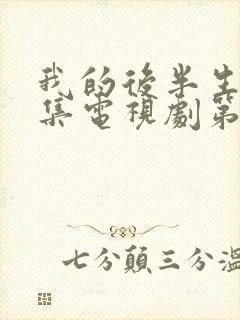 我的後半生
集電視劇第
七分顛三分溫